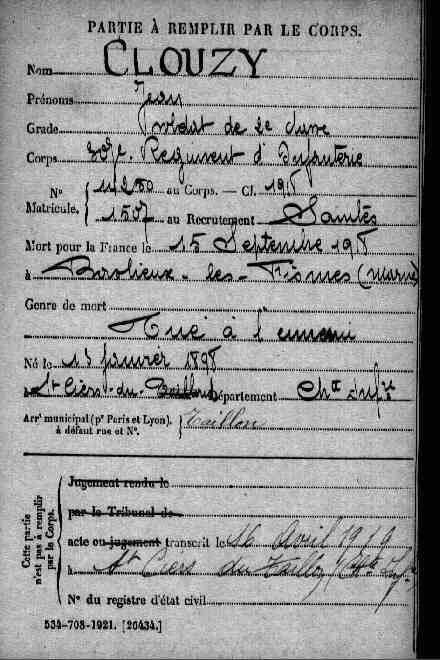 PARTIE À REMPLIR PAR LE CORPS.
Nom CLOUZY
Prénoms Jean
Grade Soldat de 2e classe
Corps Régiment d'Infanterie
N° 11250 au Corps. — Cl. 1918
Matricule. 1507 au Recrutement Saintes
Mort pour la France le 15 Septembre 1918
à Breslieux-les-Fismes (Marne)
Genre de mort
Tué à l'ennemi
Né le 13 janvier 1898
à St Ciers-du-Taillon Département Chte Infre
Arrt municipal (pr Paris et Lyon), à défaut rue et N°. Taillon
Cette partie n'est pas à remplir par le Corps.
Jugement rendu le
par le Tribunal de
acte ou jugement transcrit le 16 Avril 1919
à St Ciers du Taillon (Chte Infre
N° du registre d'état civil
534-708-1921. [26434.]